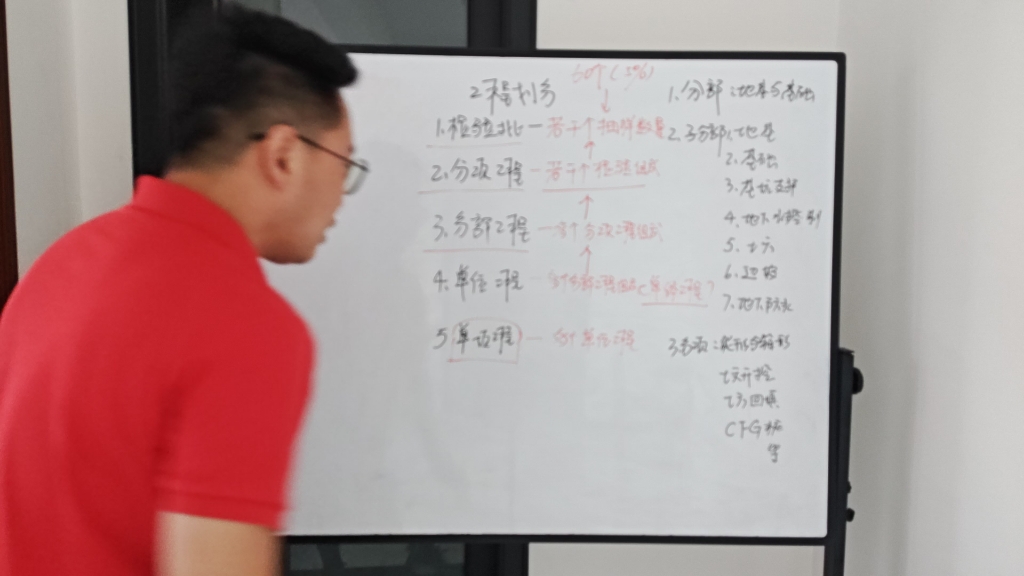 工程划分
50个(3%)
1.检验批—若干个抽样数量
2.分项工程—若干个检验批组成
3.分部工程—多个分项工程组成
4.单位工程—多个分部工程组成(单项工程)
5 单项工程—多个单位工程
1.分部:地基与基础
2.子分部:地基
2.基础
3.基坑支护
4.地下水控制
5.土方
6.边坡
7.地下防水
3分项:
土方开挖
土方回填
CFG桩
等